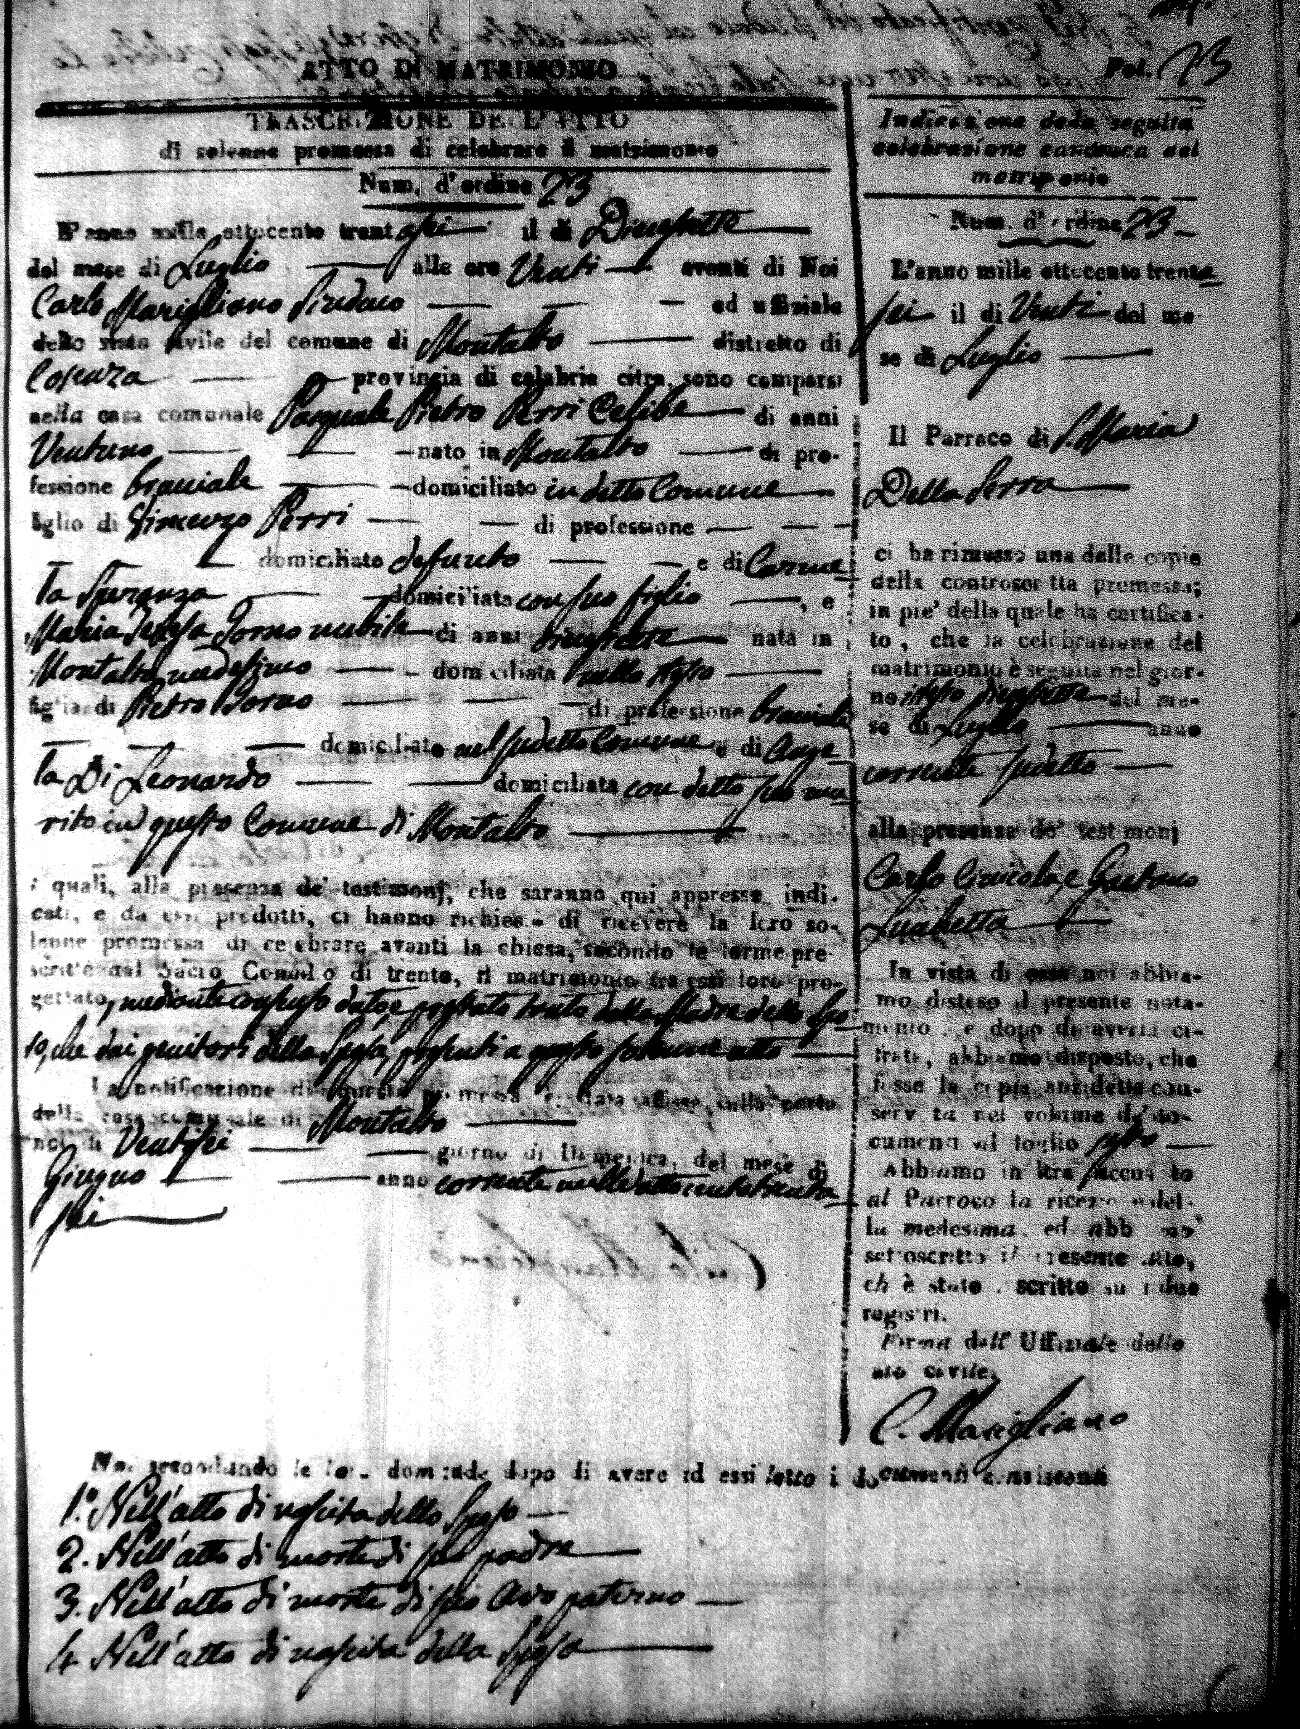 ATTO DI MATRIMONIO
Fol. 23
TRASCRIZIONE DELL'ATTO
di solenne promessa di celebrare il matrimonio
Num. d'ordine 23
L'anno mille ottocento trentasei il di Diciassette
del mese di Luglio alle ore Venti avanti di Noi
Carlo Marigliano Sindaco ed uffiziale
dello stato civile del comune di Montalto distretto di
Cosenza provincia di calabria citra, sono comparsi
nella casa comunale Pasquale Pietro Perri Celibe di anni
Ventuno nato in Montalto di pro-
fessione bracciale domiciliato in detto Comune
figlio di Vincenzo Perri di professione
domiciliato defunto e di Carme
ta Speranza domiciliata con suo figlio, e
Maria Teresa Sorno nubile di anni nata in
Montalto medesimo domiciliata nello stesso
figlia di Pietro Sorno di professione bracciale
domiciliato nel sudetto Comune e di Ange
la Di Leonardo domiciliata con detto suo ma
rito in questo Comune di Montalto
i quali, alla presenza de' testimonj, che saranno qui appresso indi-
cati, e da essi prodotti, ci hanno richiesto di ricevere la loro so-
lenne promessa di celebrare avanti la chiesa, secondo le forme pre-
scritte dal Sacro Concilio di trento, il matrimonio tra essi loro pro-
gettato, mediante consenso dato e prestato tanto dalla Madre dello Spo
so, che dai genitori della Sposa presenti a questo solenne atto
La notificazione di questa promessa è stata affissa sulla porta
della casa comunale di Montalto
nel di Ventisei giorno di Domenica, del mese di
Giugno anno corrente mille ottocento trenta
sei
Noi secondando le loro domande dopo di avere ad essi letto i documenti consistenti
1.° Nell'atto di nascita dello Sposo
2. Nell'atto di morte di suo padre
3. Nell'atto di morte di suo Avo paterno
4. Nell'atto di nascita della Sposa
Indicazione della seguita
celebrazione canonica del
matrimonio
Num. d'ordine 23
L'anno mille ottocento trenta
sei il di Venti del me
se di Luglio
Il Parroco di S. Maria
Della Serra
ci ha rimesso una delle copie
della controscritta promessa;
in piè della quale ha certifica-
to, che la celebrazione del
matrimonio è seguita nel gior-
no del me-
se di Luglio anno
corrente sudetto
alla presenza de' testimonj
Carlo e Gaetano
In vista di essa noi abbia-
mo disteso il presente nota-
mento, e dopo di averla ci-
frata, abbiamo disposto, che
fosse la copia anzidetta con-
servata nel volume de' do-
cumenti al foglio
Abbiamo in oltre accusato
al Parroco la ricezione del-
la medesima, ed abbiamo
sottoscritto il presente atto,
ch'è stato iscritto su i due
registri.
Firma dell'Uffiziale dello
stato civile.
C. Marigliano